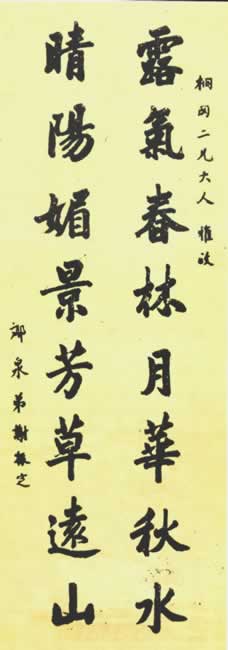 二兄大人 雅政
露氣春林月華秋水
晴陽媚景芳草遠山
泉弟謝振定